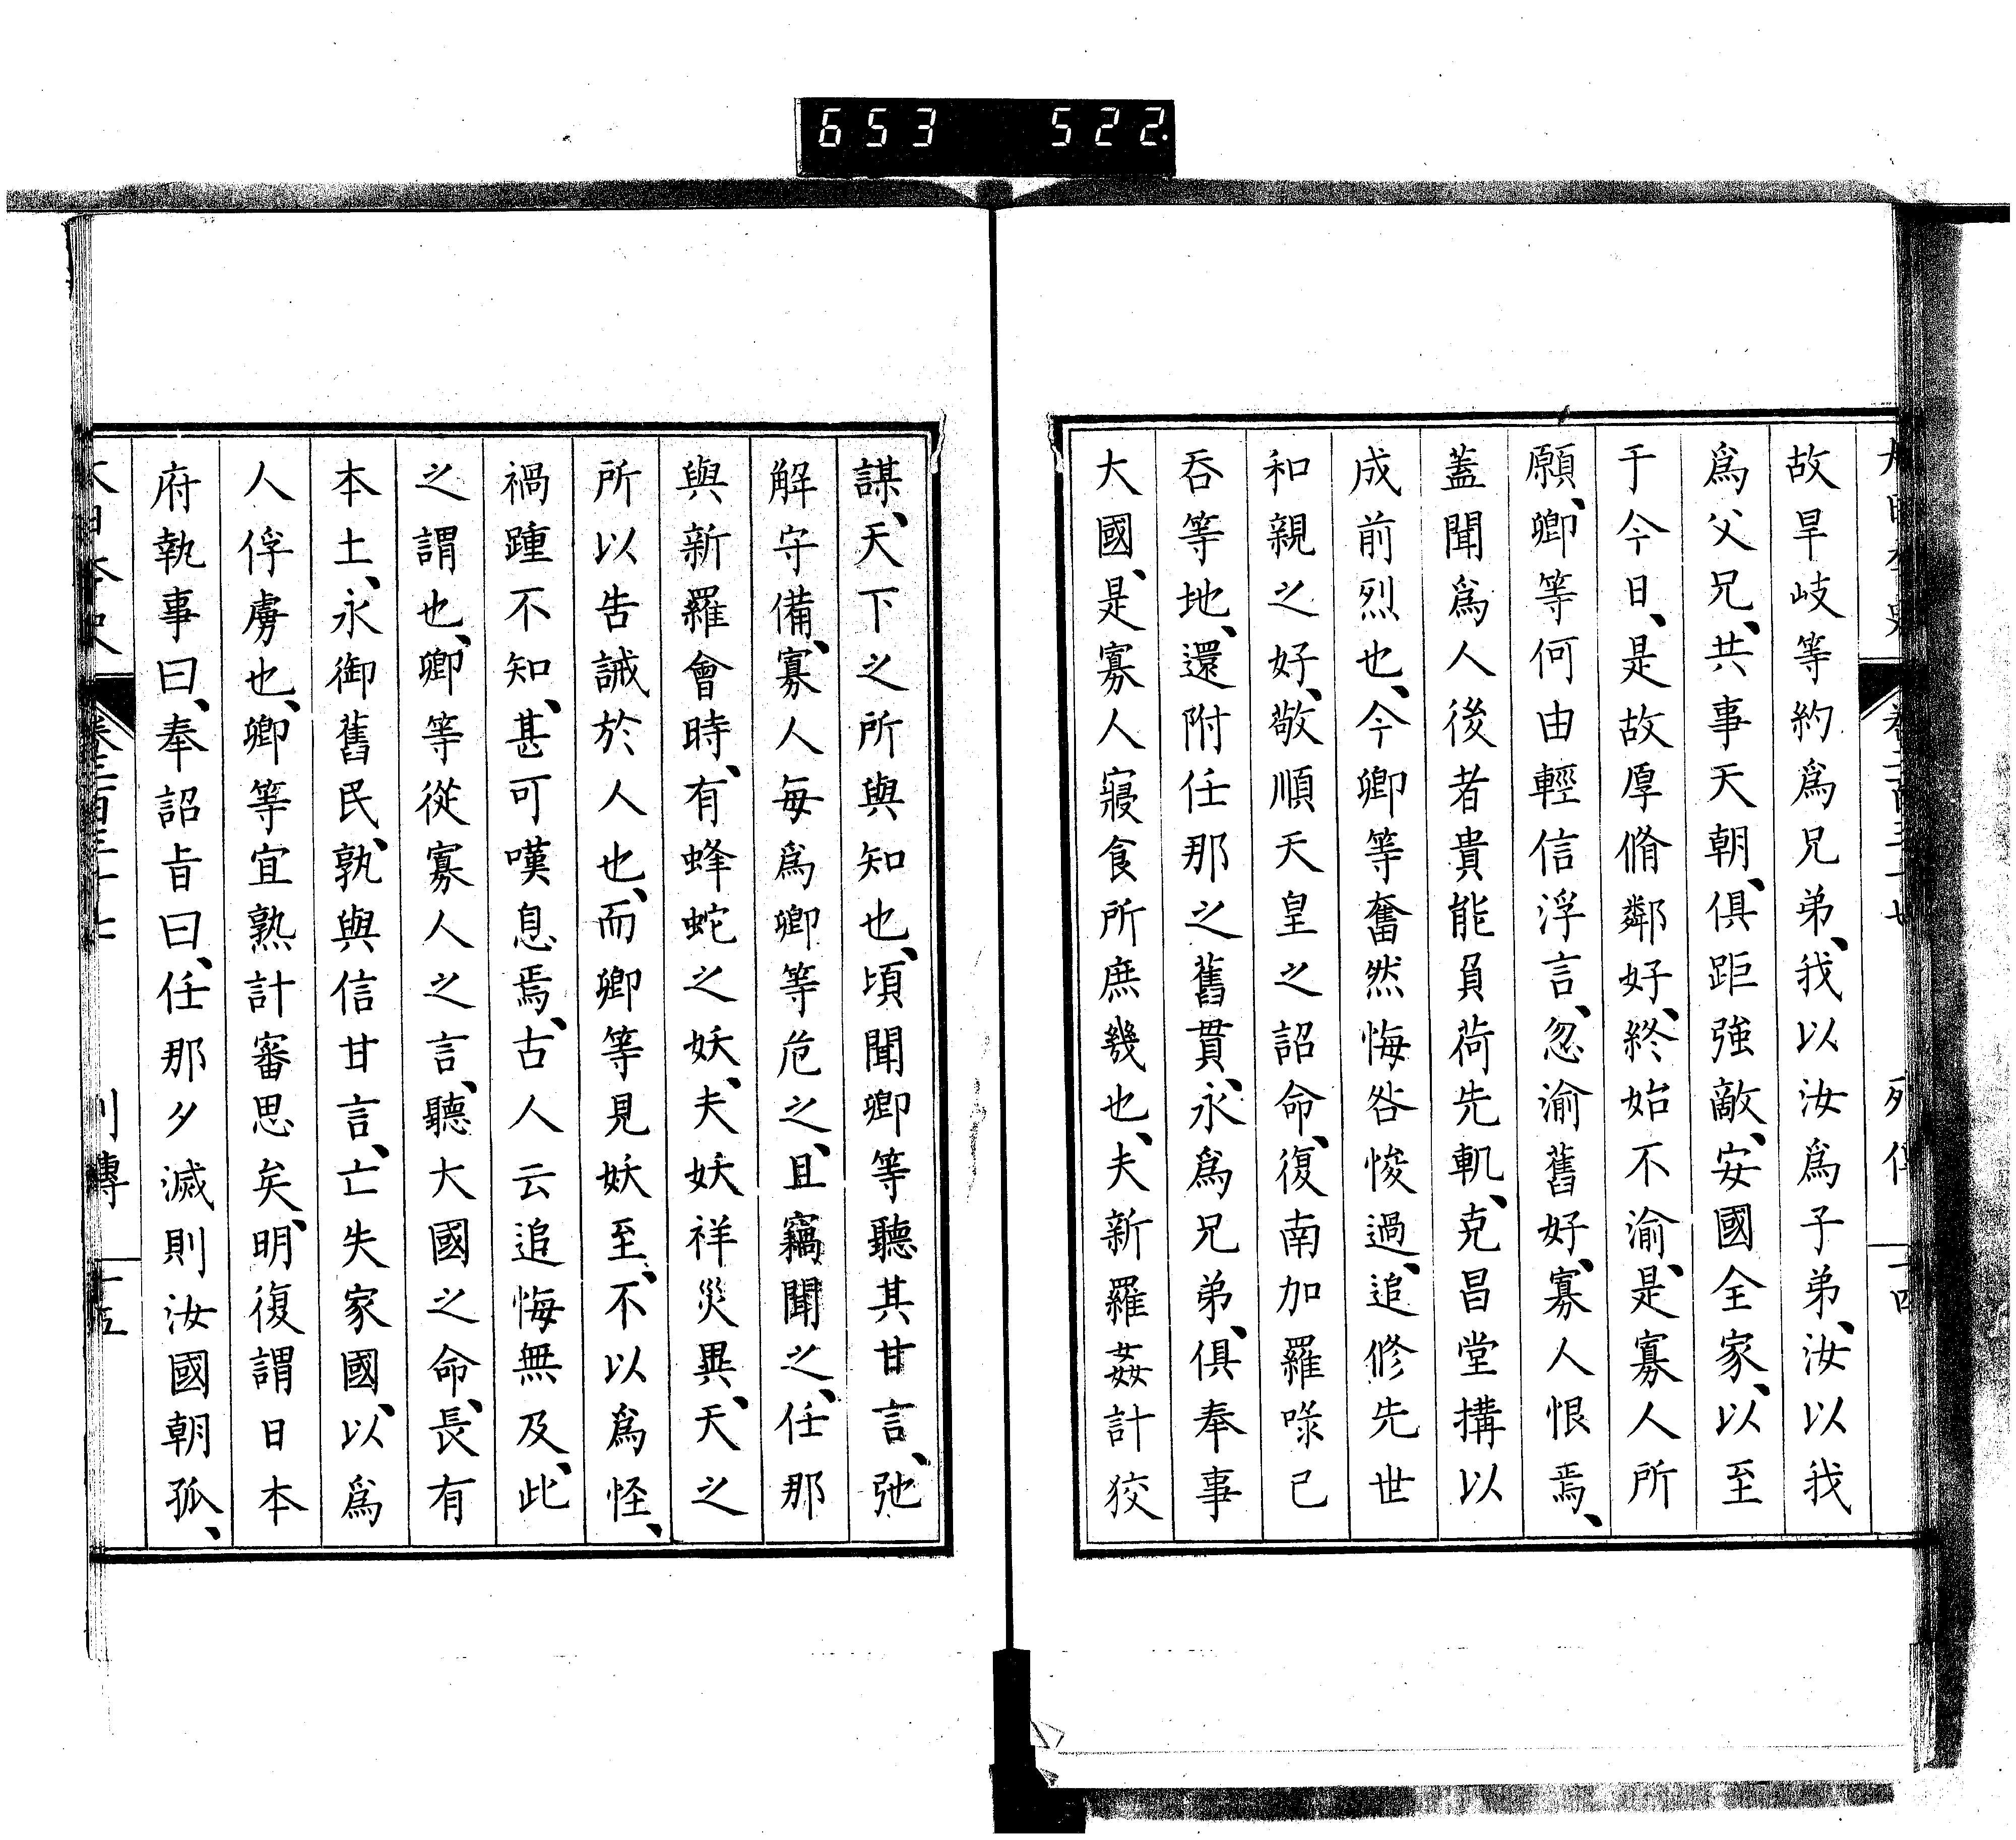 653 522
故旱岐等約爲兄弟、我以汝爲子弟、汝以我
爲父兄、共事天朝、俱距強敵、安國全家、以至
于今日、是故厚脩鄰好、終始不渝、是寡人所
願、卿等何由輕信浮言、忽渝舊好、寡人恨焉、
蓋聞爲人後者貴能負荷先軌、克昌堂搆以
成前烈也、今卿等奮然悔咎悛過、追修先世
和親之好、敬順天皇之詔命、復南加羅㖨己
吞等地、還附任那之舊貫、永爲兄弟、俱奉事
大國、是寡人寢食所庶幾也、夫新羅姦計狡
謀、天下之所與知也、頃聞卿等聽其甘言、弛
解守備、寡人每爲卿等危之、且竊聞之、任那
與新羅會時、有蜂蛇之妖、夫妖祥災異、天之
所以告誡於人也、而卿等見妖至、不以爲怪、
禍踵不知、甚可嘆息焉、古人云追悔無及、此
之謂也、卿等從寡人之言、聽大國之命、長有
本土、永御舊民、孰與信甘言、亡失家國、以爲
人俘虜也、卿等宜熟計審思矣、明復謂日本
府執事曰、奉詔旨曰、任那夕滅則汝國朝孤、
大日本史 卷二百三十七 列傳 十五